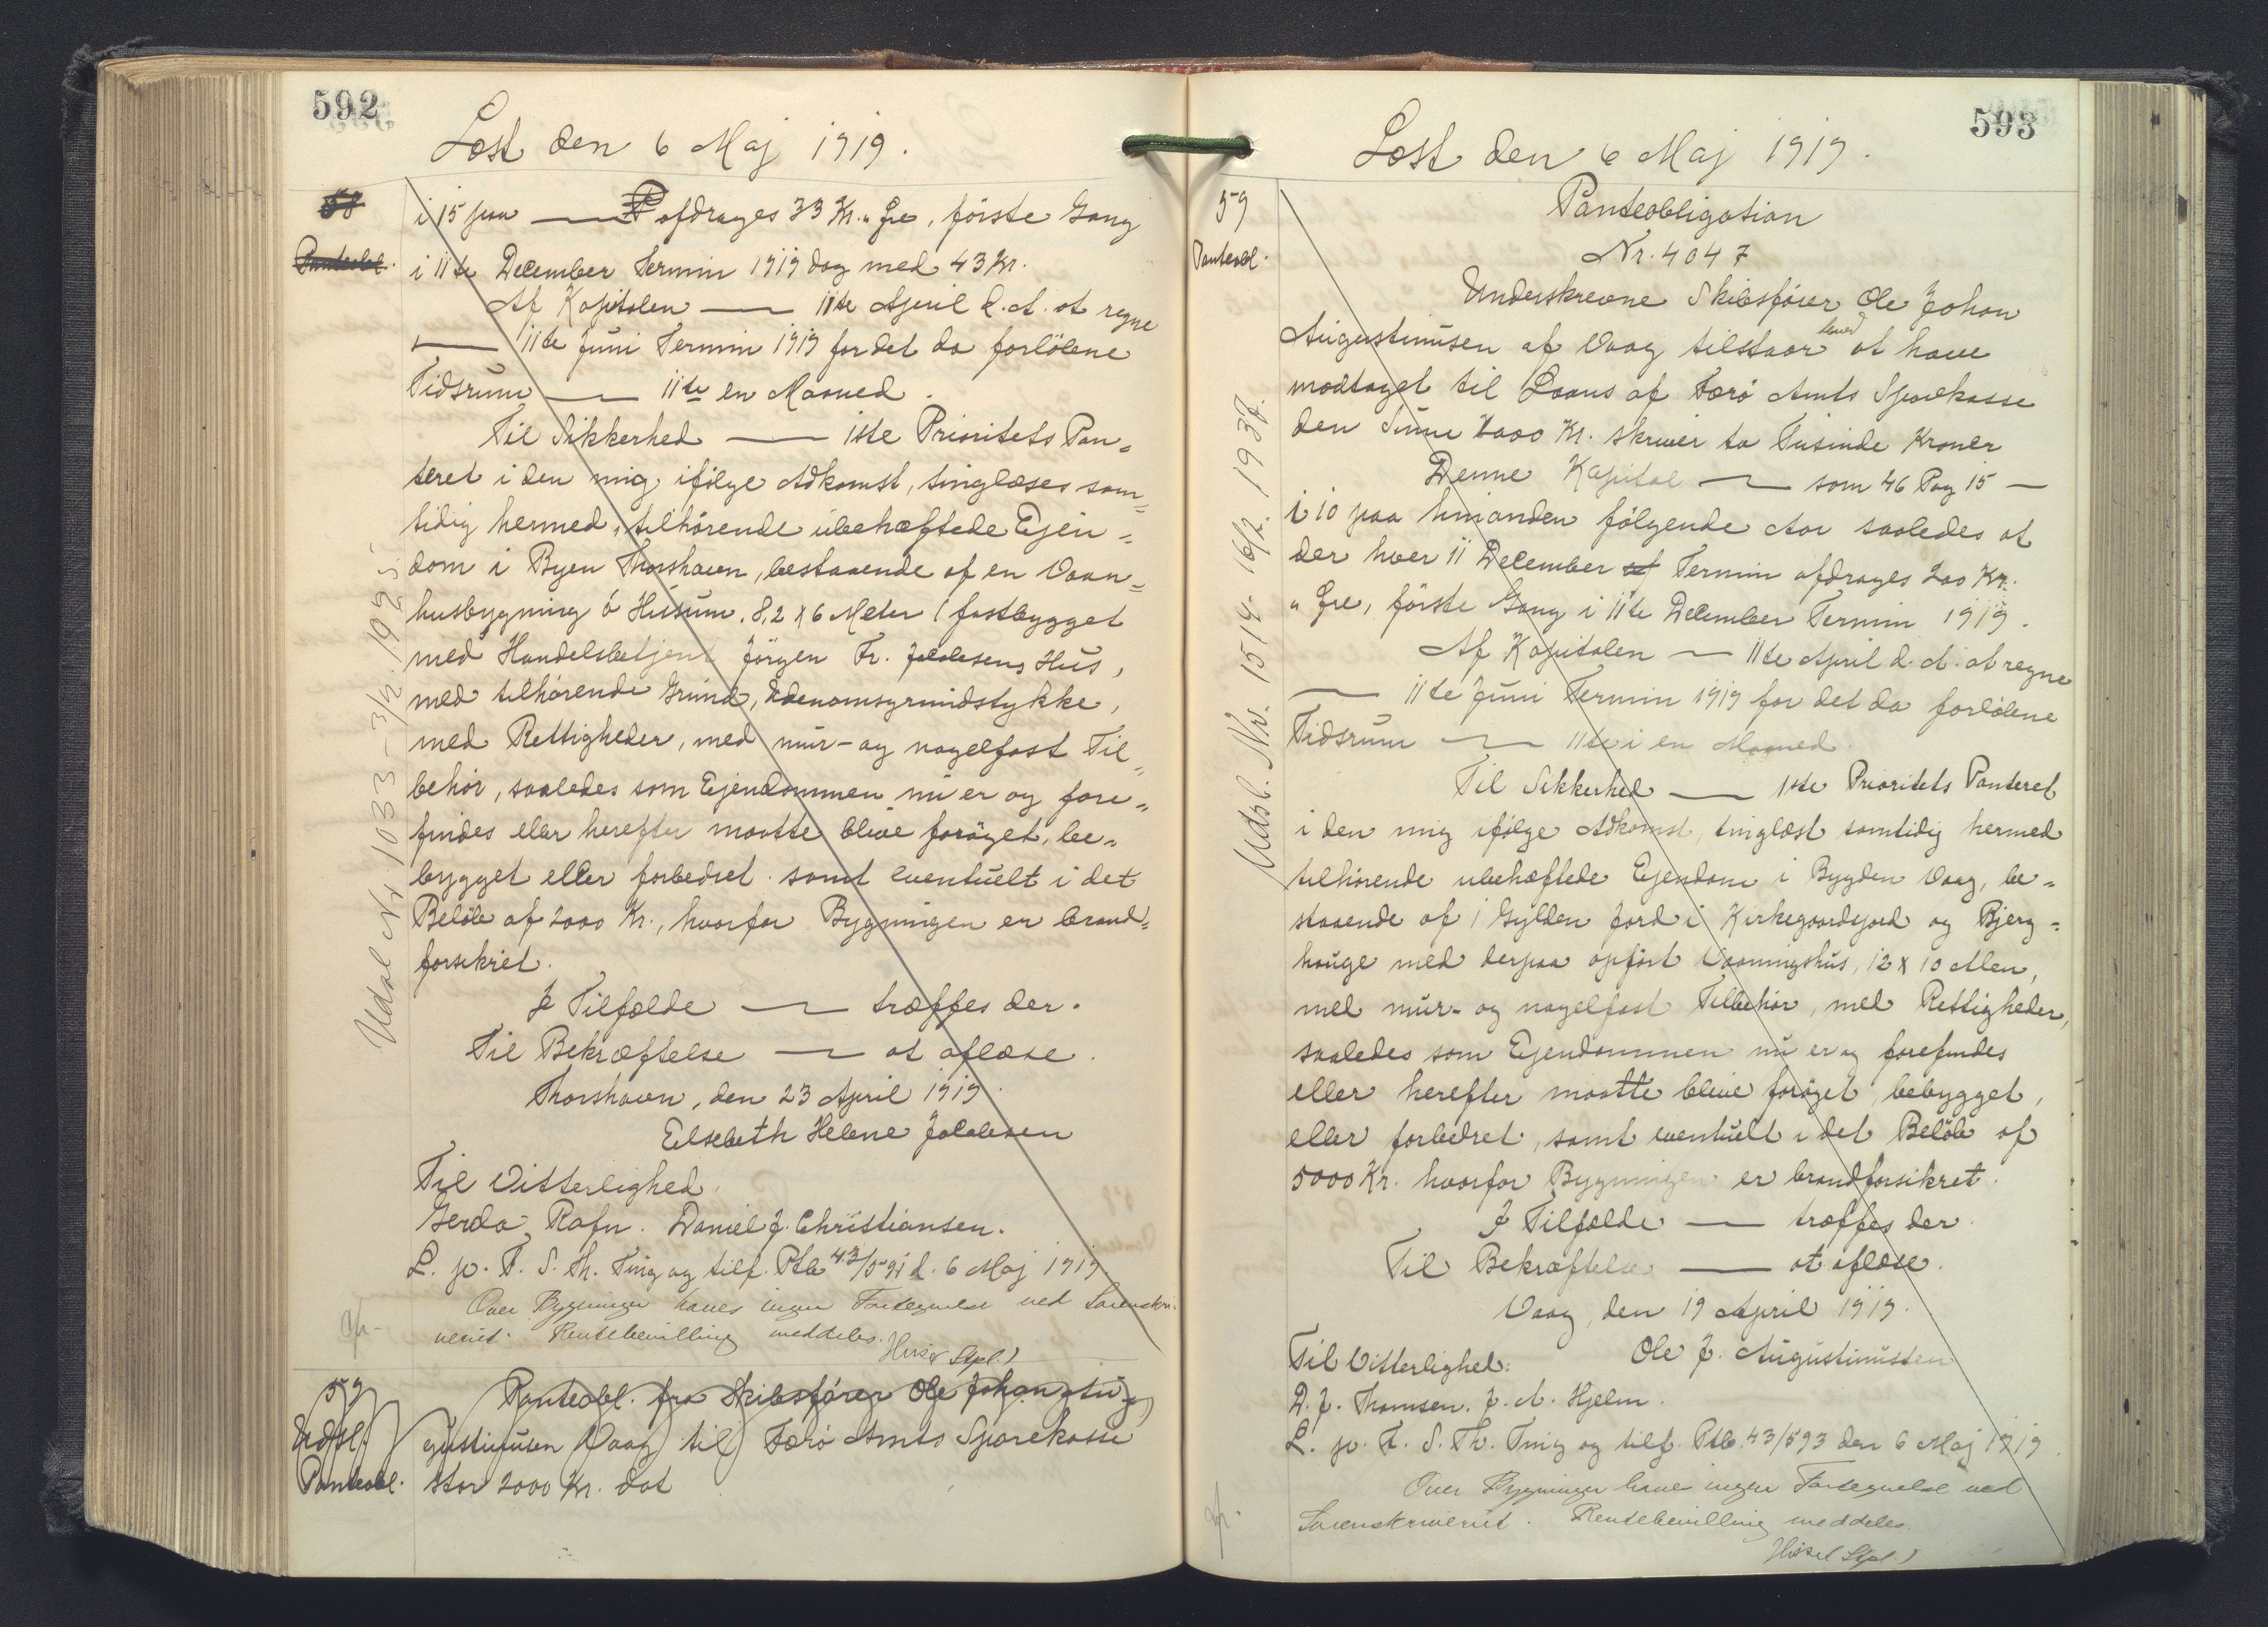 592
Læst den 6 Maj 1919.
58
Panteobl.
i 15 paa — afdrages 33 Kr. " Øre, første Gang
i 11te December Termin 1919 dog med 43 Kr.
Af Kapitalen — 11te April d. A. at regne
— 11te Juni Termin 1919 for det da forløbne
Tidsrum — 11te en Maaned.
Til Sikkerhed — 1ste Prioritets Pan=
teret i den mig ifølge Adkomst, tinglæses sam=
tidig hermed, tilhørende ubehæftede Ejen=
dom i Byen Thorshavn, bestaaende af en Vaan=
husbygning ó Húsum. 8,2 x 6 Meter (fastbygget
med Handelsbetjent Jörgen Fr. Jacobsens Hus,
med tilhørende Grund, Udenomsgrundstykke,
med Rettigheder, med mur- og nagelfast Til=
behør, saaledes som Ejendommen nu er og fore=
findes eller herefter maatte blive forøget, be=
bygget eller forbedret samt eventuelt i det
Beløb af 2000 Kr., hvorfor Bygningen er brand=
forsikret.
I Tilfælde — træffes der.
Til Bekræftelse — at aflæse.
Thorshavn, den 23 April 1919.
Elsebeth Helene Jacobsen
Til Vitterlighed.
Gerda Rafn. Daniel J. Christiansen.
L. p. F. S. Th. Ting og tilf. Ptb 43/591 d. 6 Maj 1919
Over Bygninger haves ingen Fortegnelse ved Sorenskri=
veriet. Rentebevilling meddeles.
Stpl.)
Udsl Nr 1033 - 3/12 1925
59
Udsl.
Panteobl.
Panteobl. fra Skibsfører Ole Johan Au=
gustinusen Vaag til Færø Amts Sparekasse
stor 2000 Kr. dat
593
Læst den 6 Maj 1919.
59
Panteobl.
Panteobligation
Nr. 4047
Underskrevne Skibsfører Ole Johan
Augustinusen af Vaag tilstaar herved at have
modtaget til Laans af Færø Amts Sparekasse
den Sum 2000 Kr. skriver to Tusinde Kroner
Denne Kapital — som 46 Pag 15 —
i 10 paa hinanden følgende Aar saaledes at
der hver 11 December Termin afdrages 200 Kr.
" Øre, første Gang i 11te December Termin 1919.
Af Kapitalen — 11te April d. A. at regne
— 11te Juni Termin 1919 for det da forløbne
Tidsrum — 11te i en Maaned.
Til Sikkerhed — 1ste Prioritets Panteret
i den mig ifølge Adkomst, tinglæst samtidig hermed
tilhørende ubehæftede Ejendom i Bygden Vaag, be=
staaende af 1 Gylden Jord i Kirkegaardsjord og Bjerg=
hauge med derpaa opført Vaaningshus, 12 x 10 Alen,
med mur- og nagelfast Tilbehør, med Rettigheder,
saaledes som Ejendommen nu er og forefindes
eller herefter maatte blive forøget, bebygget,
eller forbedret, samt eventuelt i det Beløb af
5000 Kr. hvorfor Bygningen er brandforsikret.
I Tilfælde — træffes der
Til Bekræftelse — at aflæse.
Vaag, den 19 April 1919.
Ole J. Augustinussen
Til Vitterlighed:
D. J. Thomsen. J. A. Hjelm.
L. p. F. S. Th. Ting og tilf. Ptb. 43/593 den 6 Maj 1919.
Over Bygninger haves ingen Fortegnelse ved
Sorenskriveriet. Rentebevilling meddeles.
Stpl.)
Udsl. Nr. 1514 - 16/2. 1937.